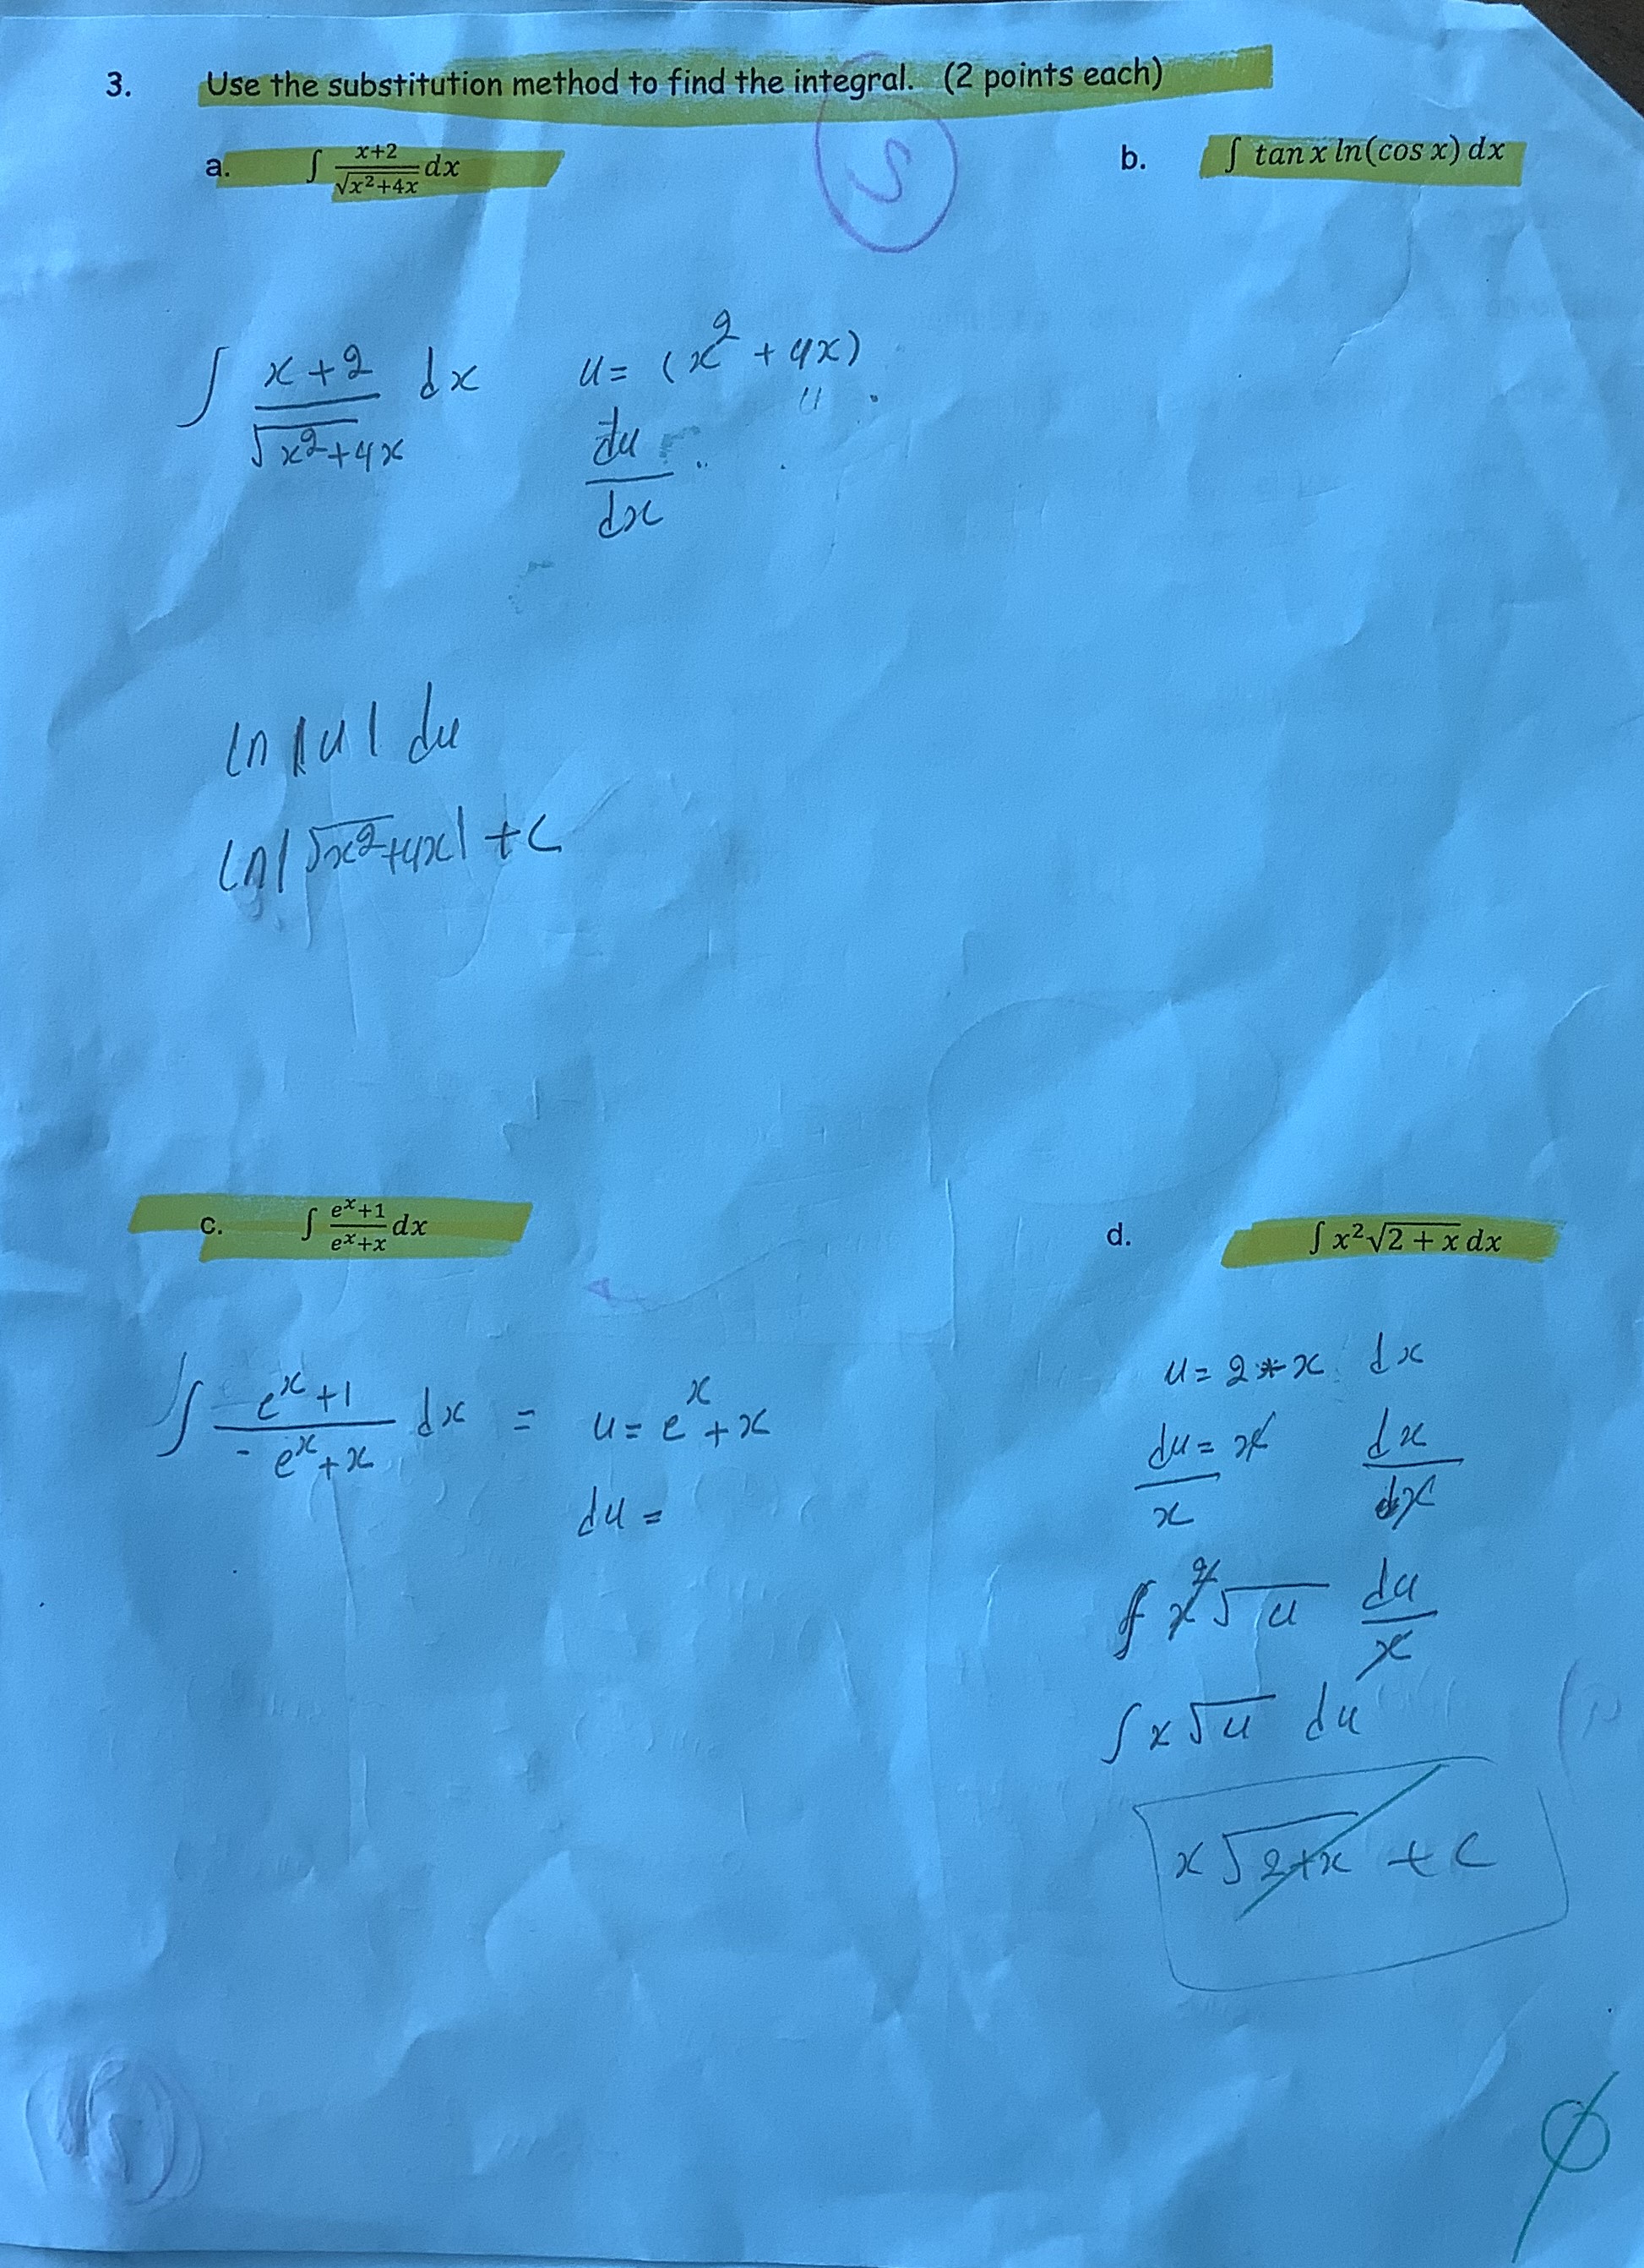 3. Use the substitution method to find the integral. (2 points each)
a. ∫ x+2/√x²+4x dx
b. ∫ tan x ln(cos x) dx
S
∫ x+2/√x²+4x dx u = (x² + 4x)
du/dx
ln |u| du
ln|√x²+4x| + c
c. ∫ eˣ+1/eˣ+x dx
d. ∫ x²√2 + x dx
∫ eˣ+1/eˣ+x dx = u = eˣ + x
du =
u = 2+x dx
du = x dx
x dx
∫ x²√u du/x
∫ x√u du
x√2+x + c